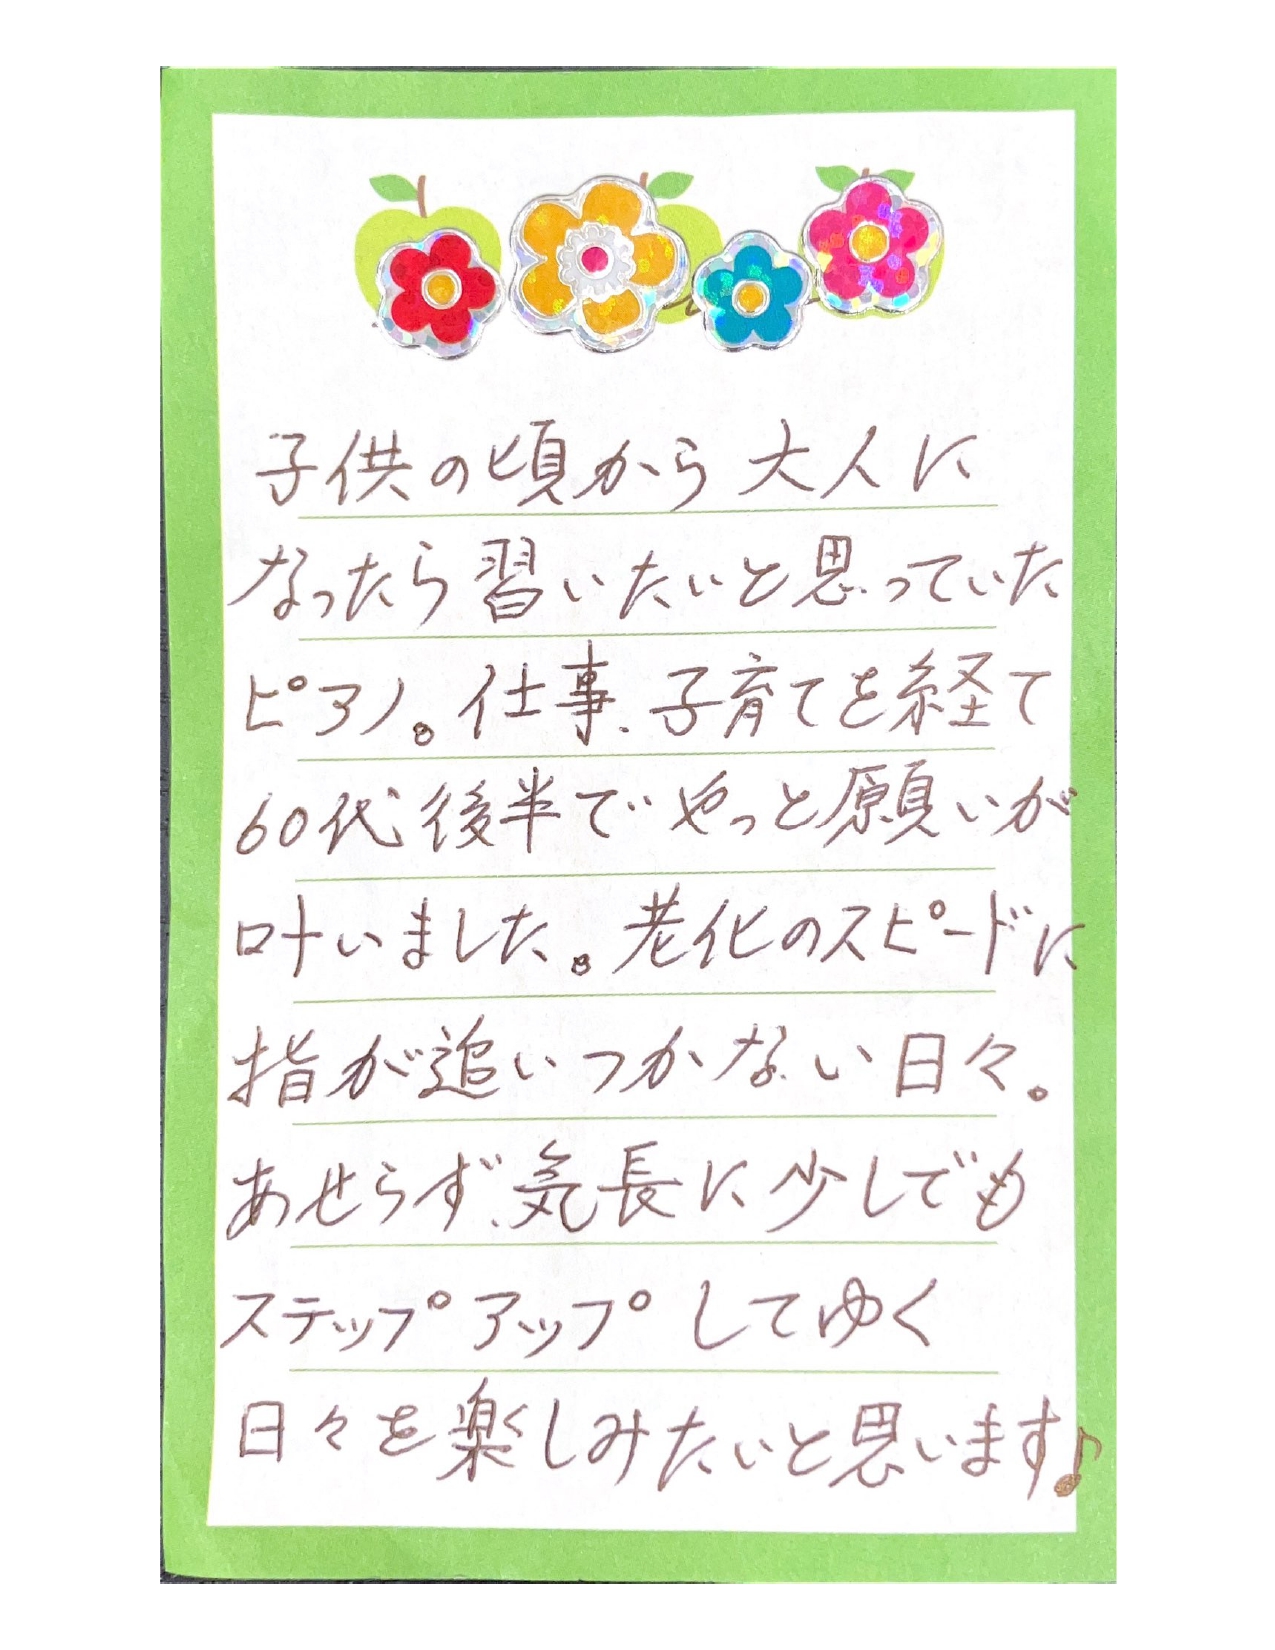 子供の頃から大人に
なったら習いたいと思っていた
ピアノ。仕事、子育てを経て
60代後半でやっと願いが
叶いました。老化のスピードに
指が追いつかない日々。
あせらず、気長に少しでも
ステップアップしてゆく
日々を楽しみたいと思います♪